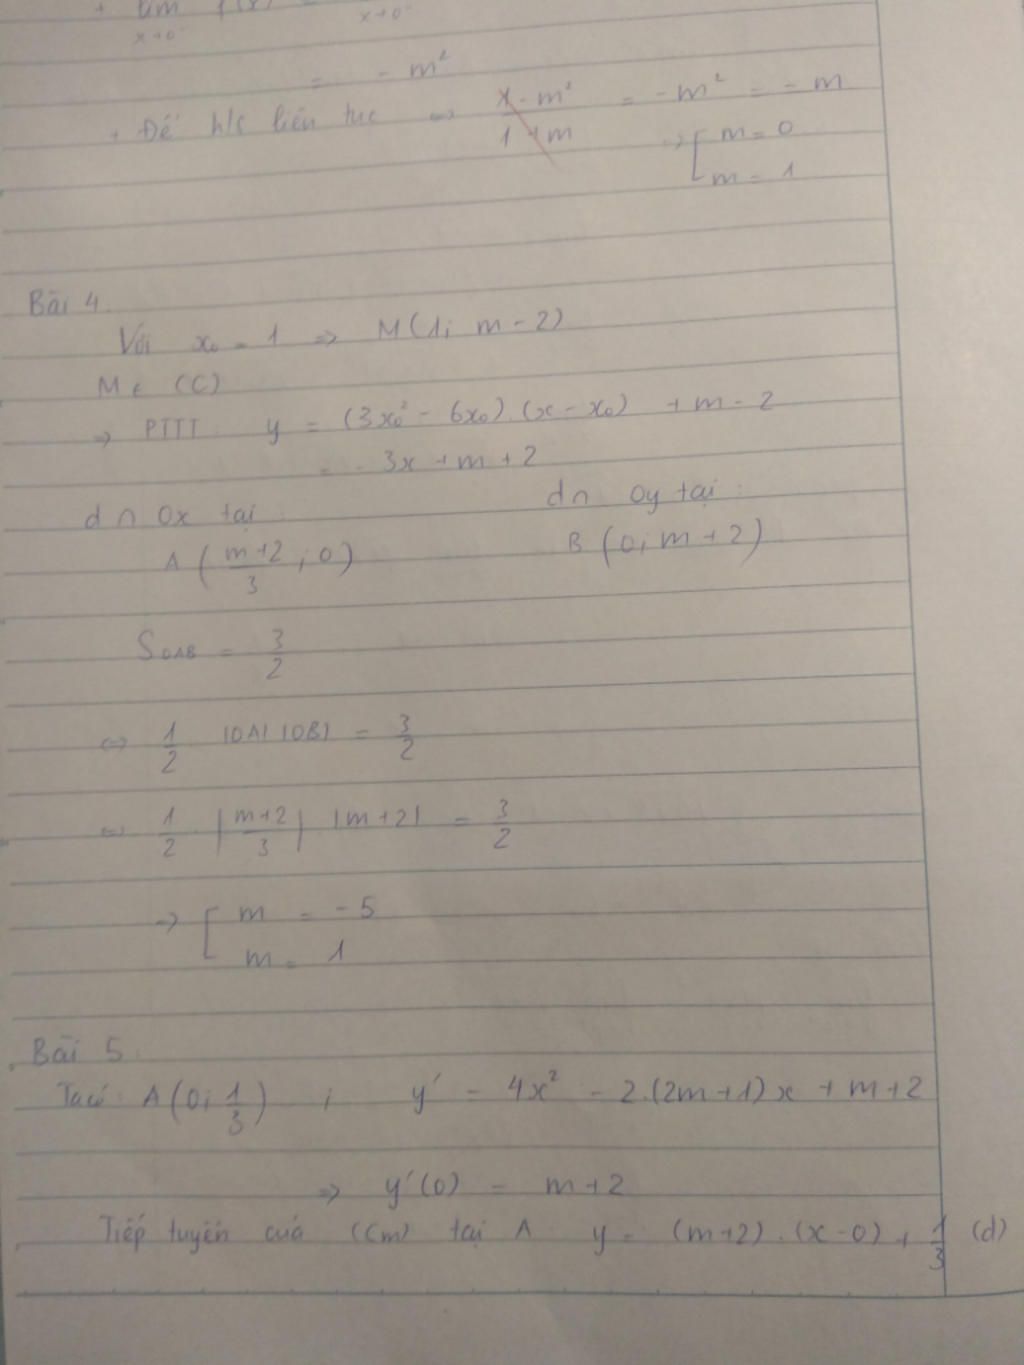 + lim f(x) =
x→0⁻ x→0⁻
= - m²
+ Để h/s liên tục ⇔ x - m² / 1 + m = -m² = -m
⇒ [ m = 0
m = 1
Bài 4.
Với x₀ = 1 ⇒ M(1; m - 2)
M ∈ (C)
⇒ PTTT: y = (3x₀² - 6x₀).(x - x₀) + m - 2
= -3x + m + 2
d ∩ Ox tại: d ∩ Oy tại:
A (m+2/3 ; 0) B (0; m + 2)
S OAB = 3/2
⇔ 1/2 |OA| |OB| = 3/2
⇔ 1/2 |m+2/3| |m+2| = 3/2
⇒ [ m = -5
m = 1
Bài 5.
Ta có: A(0; 1/3) ; y' = 4x² - 2.(2m+1)x + m+2
⇒ y'(0) = m+2
Tiếp tuyến của (Cm) tại A y = (m+2).(x-0) + 1/3 (d)